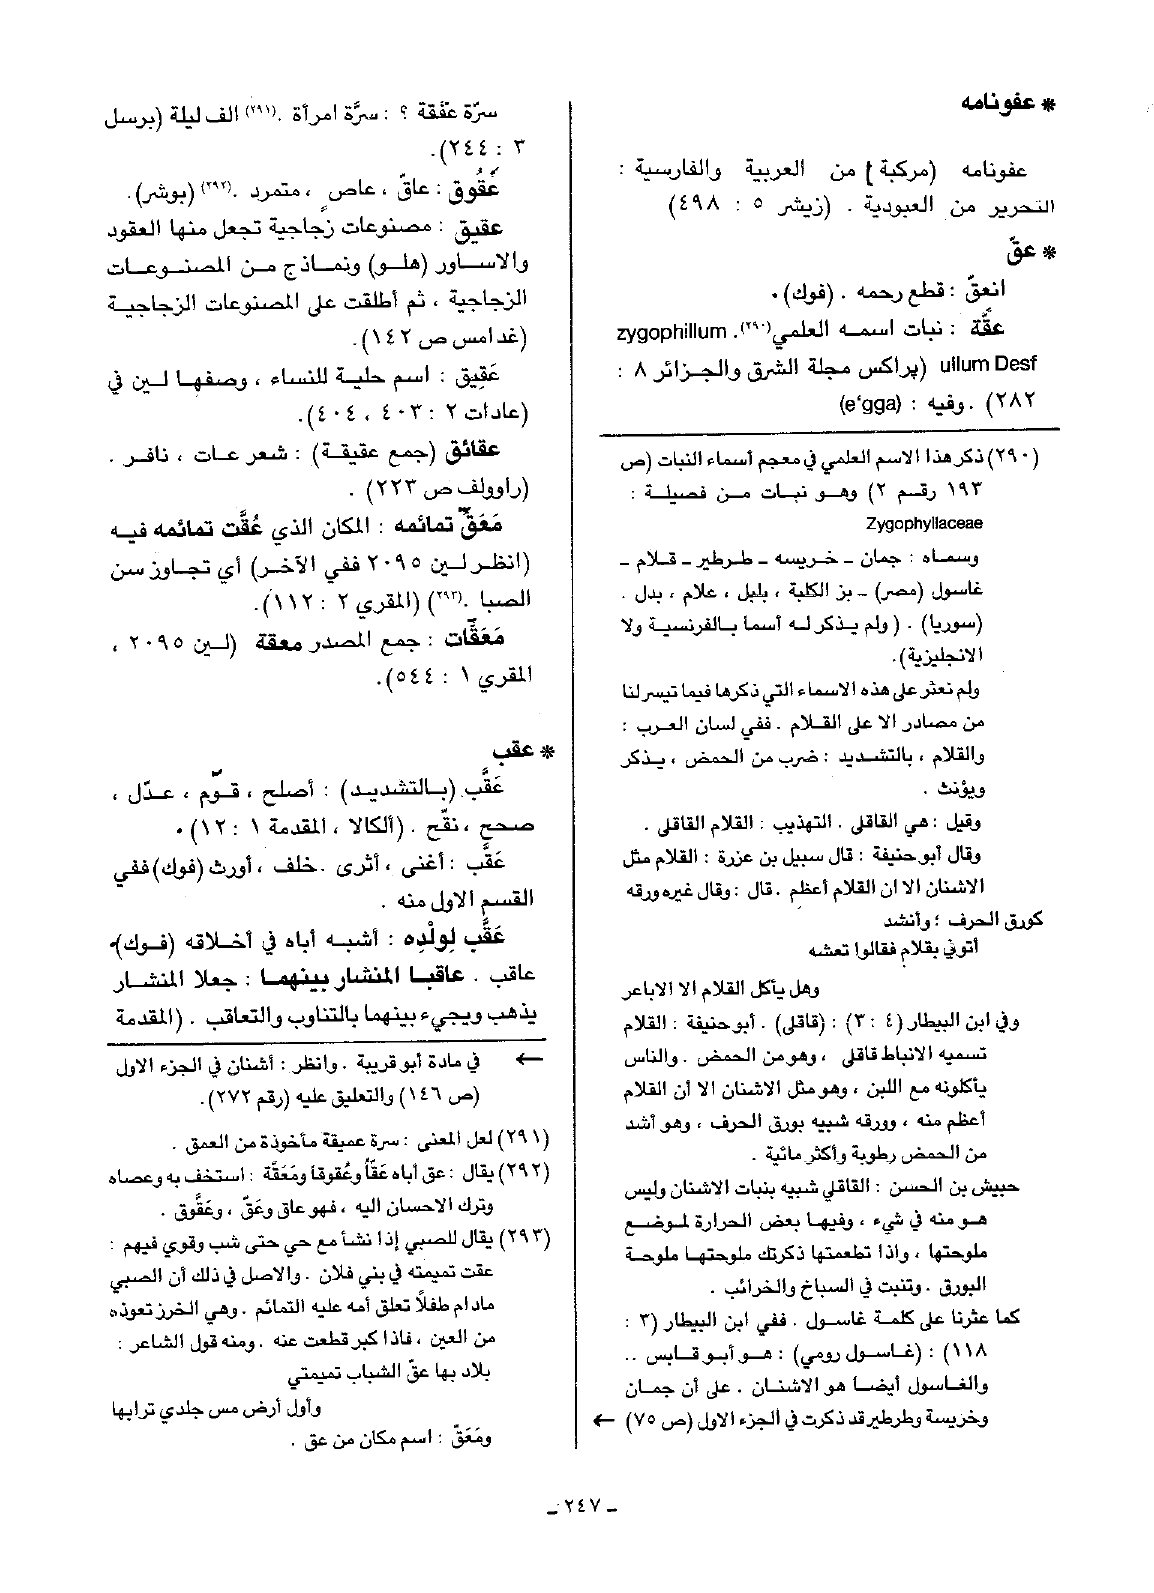 * عفونامه
عفونامه (مركبة] من العربية والفارسية :
التحرير من العبودية . (زيشر ٥ : ٤٩٨)
* عقّ
انعقّ : قطع رحمه . (فوك).
عقَّة : نبات اسمه العلمي(٢٩٠). zygophillum
uillum Desf (پراكس مجلة الشرق والجزائر ٨ :
٢٨٢) . وفيه : (e‘gga)
(٢٩٠) ذكر هذا الاسم العلمي في معجم أسماء النبات (ص
١٩٣ رقم ٢) وهو نبات من فصيلة :
Zygophyllaceae
وسماه : جمان ـ خريسه ـ طرطير ـ قلام ـ
غاسول (مصر) ـ بز الكلبة ، بلبل ، علام ، بدل .
(سوريا) . (ولم يذكر له أسما بالفرنسية ولا
الانجليزية).
ولم نعثر على هذه الاسماء التي ذكرها فيما تيسر لنا
من مصادر الا على القلام . ففي لسان العرب :
والقلام ، بالتشديد : ضرب من الحمض ، يذكر
ويؤنث .
وقيل : هي القاقلى . التهذيب : القلام القاقلى .
وقال أبو حنيفة : قال سبيل بن عزرة : القلام مثل
الاشنان الا ان القلام أعظم . قال : وقال غيره ورقه
كورق الحرف ؛ وأنشد
أتوني بقلام فقالوا تعشه
وهل يأكل القلام الا الاباعر
وفي ابن البيطار (٤ : ٣) : (قاقلى) . أبو حنيفة : القلام
تسميه الانباط قاقلى ، وهو من الحمض . والناس
يأكلونه مع اللبن ، وهو مثل الاشنان الا أن القلام
أعظم منه ، وورقه شبيه بورق الحرف ، وهو أشد
من الحمض رطوبة وأكثر مائية .
حبيش بن الحسن : القاقلي شبيه بنبات الاشنان وليس
هو منه في شيء ، وفيها بعض الحرارة لموضع
ملوحتها ، واذا تطعمتها ذكرتك ملوحتها ملوحة
البورق . وتنبت في السباخ والخرائب .
كما عثرنا على كلمة غاسول . ففي ابن البيطار (٣ :
١١٨) : (غاسول رومي) : هو أبو قابس ..
والغاسول أيضا هو الاشنان . على أن جمان
وخريسة وطرطير قد ذكرت في الجزء الاول (ص ٧٥) ←
سرّة عقّقة ؟ : سرَّة امرأة .(٢٩١) الف ليلة (برسل
٣ : ٢٤٤).
عُقُوق : عاقّ ، عاصٍ ، متمرد .(٢٩٢) (بوشر).
عقيق : مصنوعات زُجاجية تجعل منها العقود
والاساور (هلو) ونماذج من المصنوعات
الزجاجية ، ثم أطلقت على المصنوعات الزجاجية
(غدامس ص ١٤٢).
عَقِيق : اسم حلية للنساء ، وصفها لين في
(عادات ٢ : ٤٠٣ ، ٤٠٤).
عقائق (جمع عقيقة) : شعر عات ، نافر .
(راوولف ص ٢٢٣) .
مَعَقّ تمائمه : المكان الذي عُقَّت تمائمه فيه
(انظر لين ٢٠٩٥ ففي الآخر) أي تجاوز سن
الصبا .(٢٩٣) (المقري ٢ : ١١٢).
مَعَقَّات : جمع المصدر معقة (لين ٢٠٩٥ ،
المقري ١ : ٥٤٤).
* عقب
عَقَّب (بالتشديد) : أصلح ، قوّم ، عدّل ،
صحح ، نقّح . (ألكالا ، المقدمة ١ : ١٢) .
عَقَّب : أغنى ، أثرى . خلف ، أورث (فوك) ففي
القسم الاول منه .
عَقَّب لِولْدِه : أشبه أباه في أخلاقه (فوك).
عاقب . عاقبا المنشار بينهما : جعلا المنشار
يذهب ويجيء بينهما بالتناوب والتعاقب . (المقدمة
← في مادة أبو قريبة . وانظر : أشنان في الجزء الاول
(ص ١٤٦) والتعليق عليه (رقم ٢٧٢).
(٢٩١) لعل المعنى : سرة عميقة مأخوذة من العمق .
(٢٩٢) يقال : عق أباه عَقّاً وعُقوقا ومَعَقَّة : استخف به وعصاه
وترك الاحسان اليه ، فهو عاق وعَقّ ، وعَقُوق .
(٢٩٣) يقال للصبي إذا نشأ مع حي حتى شب وقوي فيهم :
عقت تميمته في بني فلان . والاصل في ذلك أن الصبي
مادام طفلاً تعلق أمه عليه التمائم . وهي الخرز تعوذه
من العين ، فاذا كبر قطعت عنه . ومنه قول الشاعر :
بلاد بها عقّ الشباب تميمتي
وأول أرض مس جلدي ترابها
ومَعَقّ : اسم مكان من عق .
ـ ٢٤٧ ـ